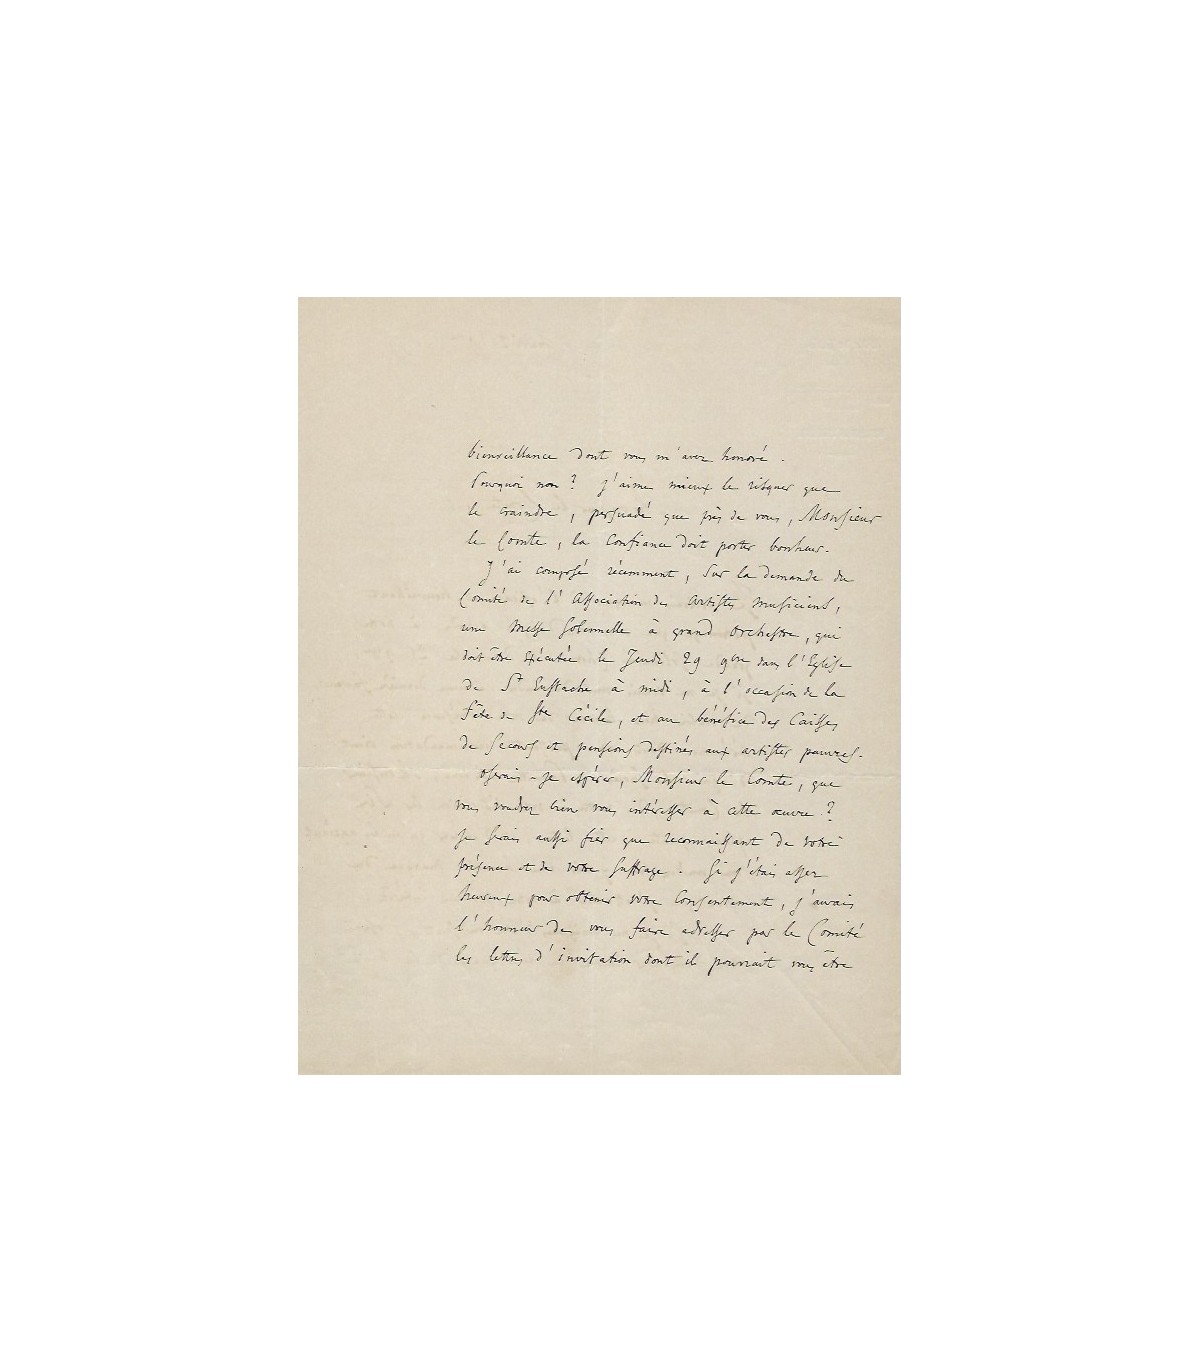 bienveillance dont vous m'avez honoré.
Pourquoi non? J'aime mieux le risquer que
le craindre, persuadé que près de vous, Monsieur
le Comte, la confiance doit porter bonheur.
J'ai composé récemment, sur la demande du
Comité de l'Association des Artistes Musiciens,
une Messe Solennelle à grand Orchestre, qui
doit être exécutée le Jeudi 29 9bre dans l'Eglise
de St Eustache à midi, à l'occasion de la
fête de Ste Cécile, et au bénéfice des Caisses
de secours et pensions destinés aux artistes pauvres.
Oserais-je espérer, Monsieur le Comte, que
vous voudrez bien vous intéresser à cette œuvre?
Je serais aussi fier que reconnaissant de votre
présence et de votre suffrage. Si j'étais assez
heureux pour obtenir votre consentement, j'aurais
l'honneur de vous faire adresser par le Comité
les lettres d'invitation dont il pourrait vous être